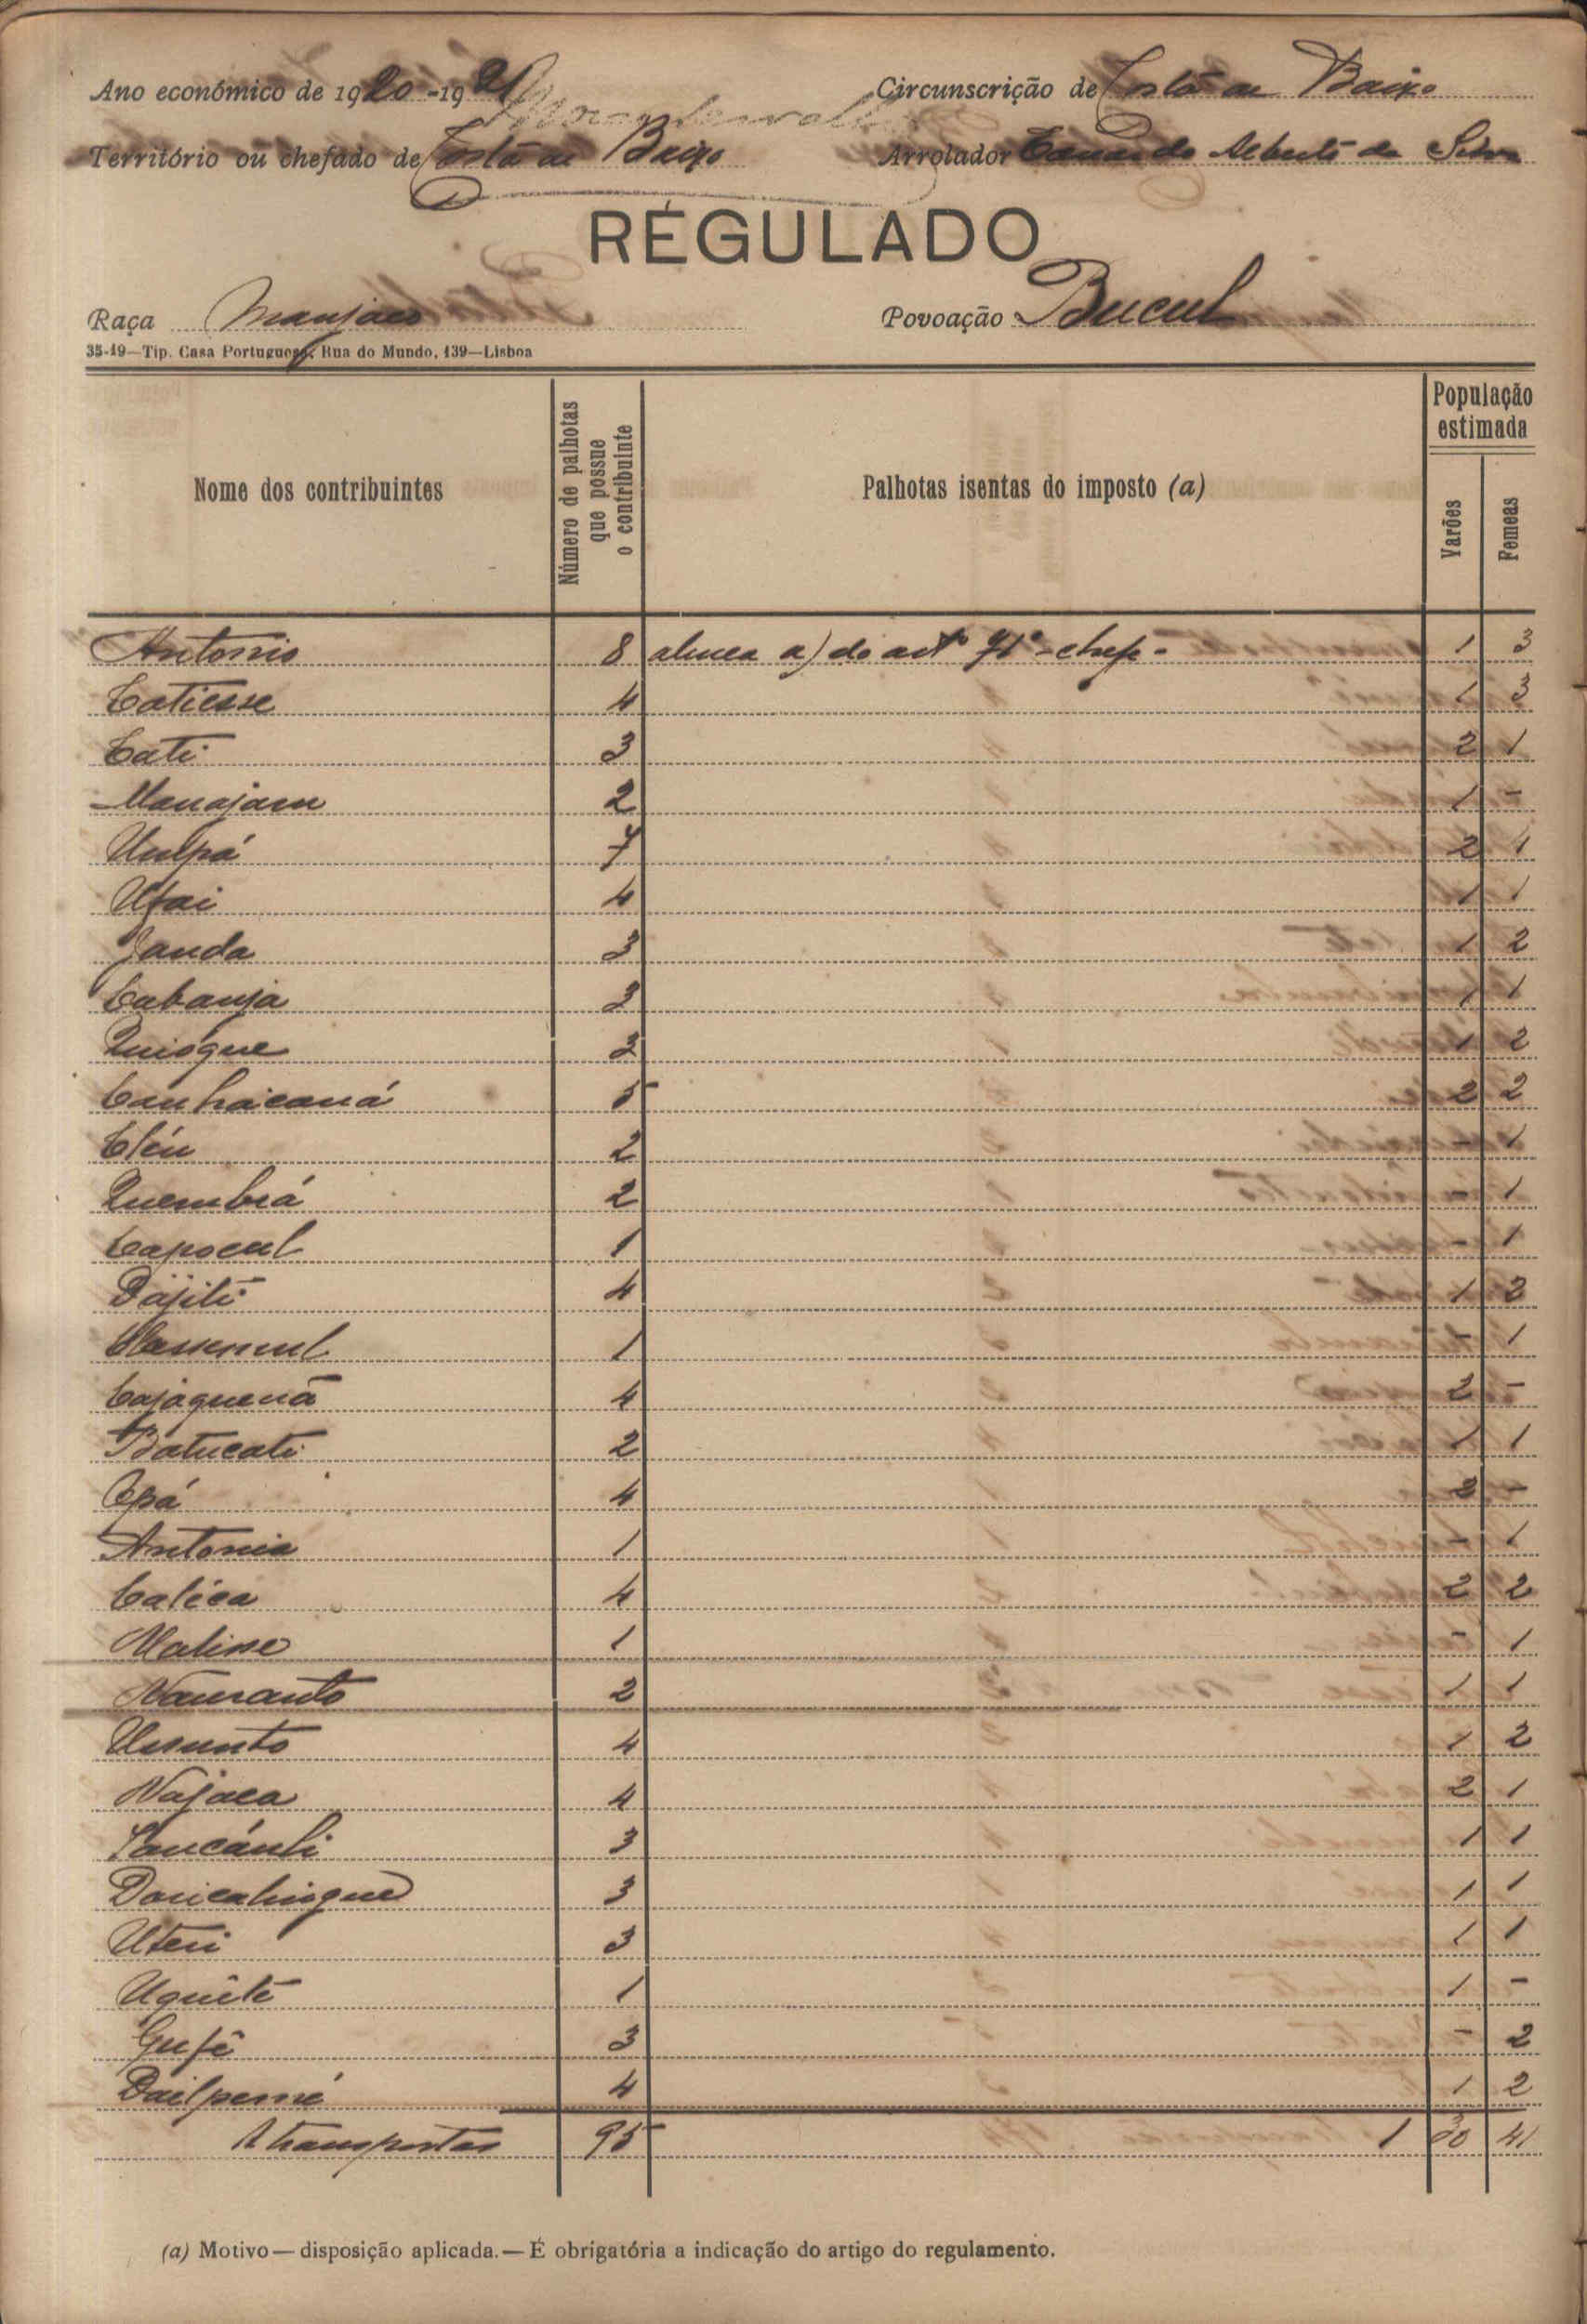 Ano económico de 1920-1921 Circunscrição de Costa de Baixo
Território ou chefado de Costa de Baixo Arrolador Eduardo Alberto da Silva
REGULADO
Raça Manjaco Povoação Bucul
35-19—Tip. Casa Portuguesa, Rua do Mundo, 139—Lisboa
Nome dos contribuintes Número de palhotas que possue o contribuinte Palhotas isentas do imposto (a) População estimada Varões Femeas
Antonio 8 alinea a) do artº 71º - chefe - 1 3
Catiesse 4 1 3
Cati 3 2 1
Manajam 2 1 -
Unlpá 7 2 4
Ufai 4 1 1
Janda 3 1 2
Cabanja 3 1 1
Quiogue 3 1 2
Canhacaná 5 2 2
Cléu 2 - 1
Quembrá 2 - 1
Capocul 1 - 1
Dájiti 4 1 2
1 - 1
Cajaquenã 4 2 -
Batucati 2 1 1
Opá 4 3 -
Antonia 1 - 1
Caléca 4 2 2
Malisse 1 - 1
Namanto 2 1 1
Ussunto 4 1 2
Najaca 4 2 1
3 1 1
3 1 1
Uteri 3 1 1
Uquêtê 1 1 -
Gufê 3 - 2
Dailpemé 4 1 2
A transportar 95 1 30 41
(a) Motivo—disposição aplicada.—É obrigatória a indicação do artigo do regulamento.